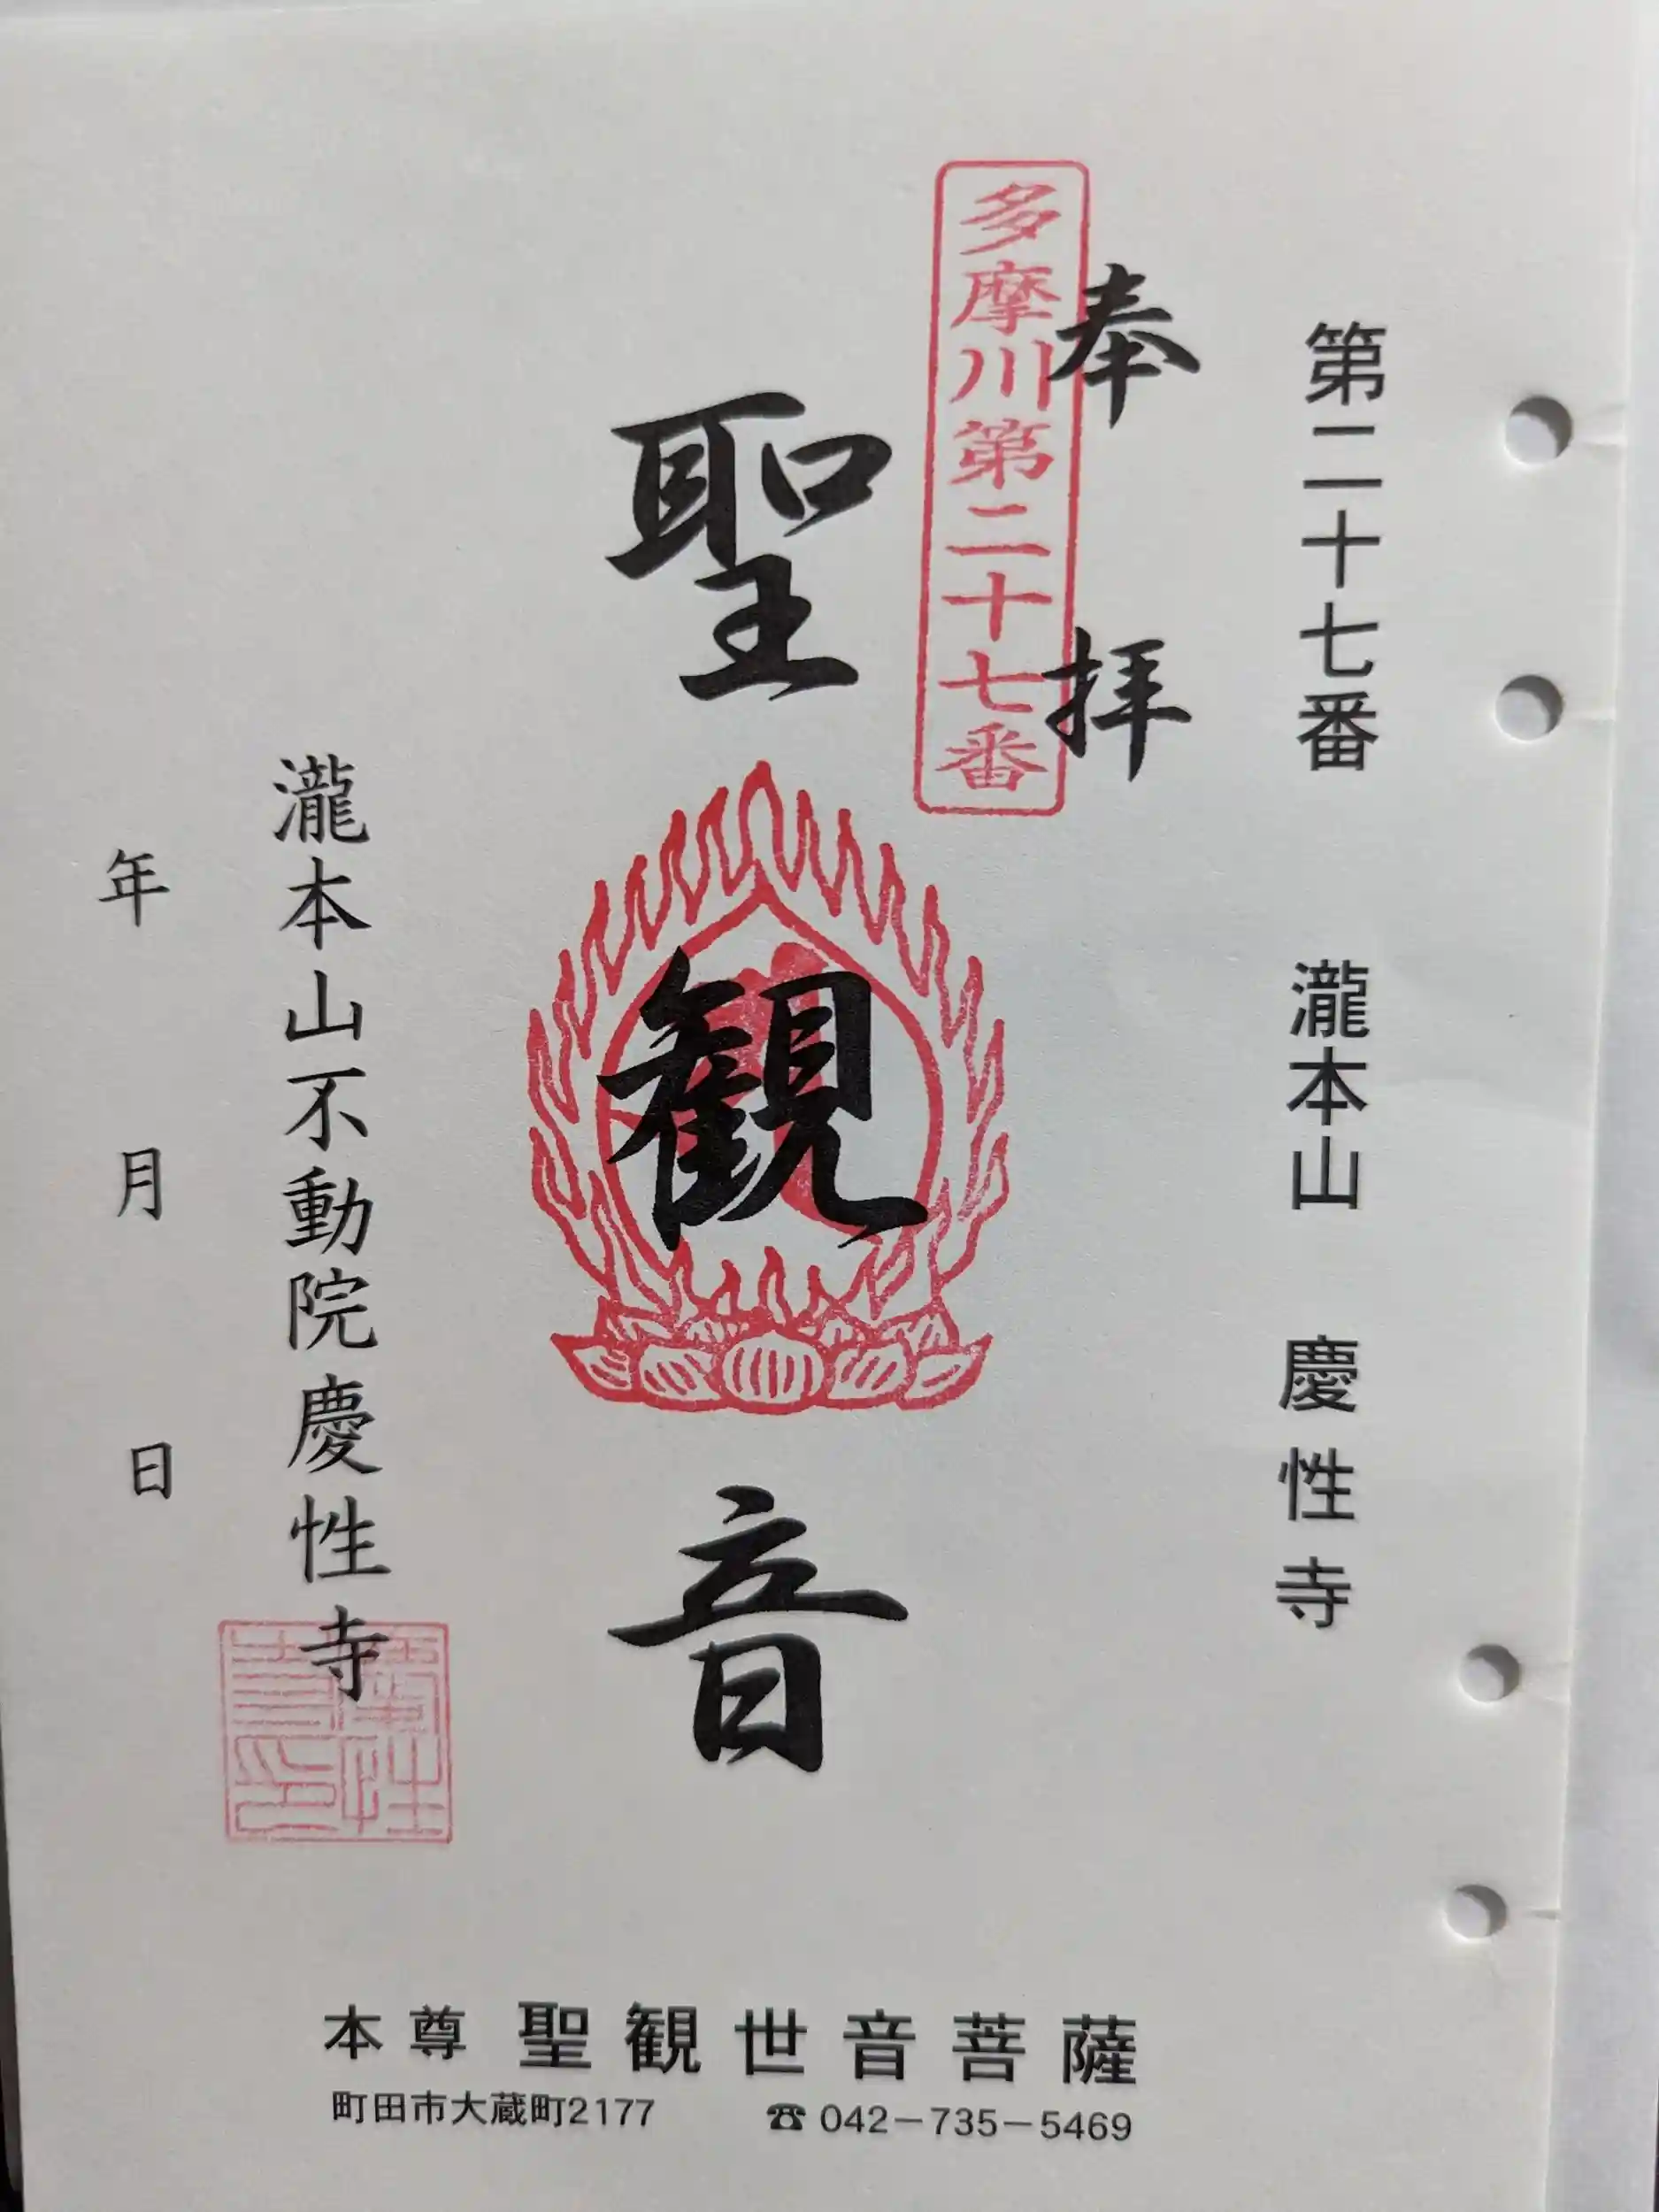 第二十七番 瀧本山 慶性寺
奉拝
多摩川第二十七番
聖観音
瀧本山不動院慶性寺
年 月 日
本尊 聖観世音菩薩
町田市大蔵町2177 ☎042-735-5469